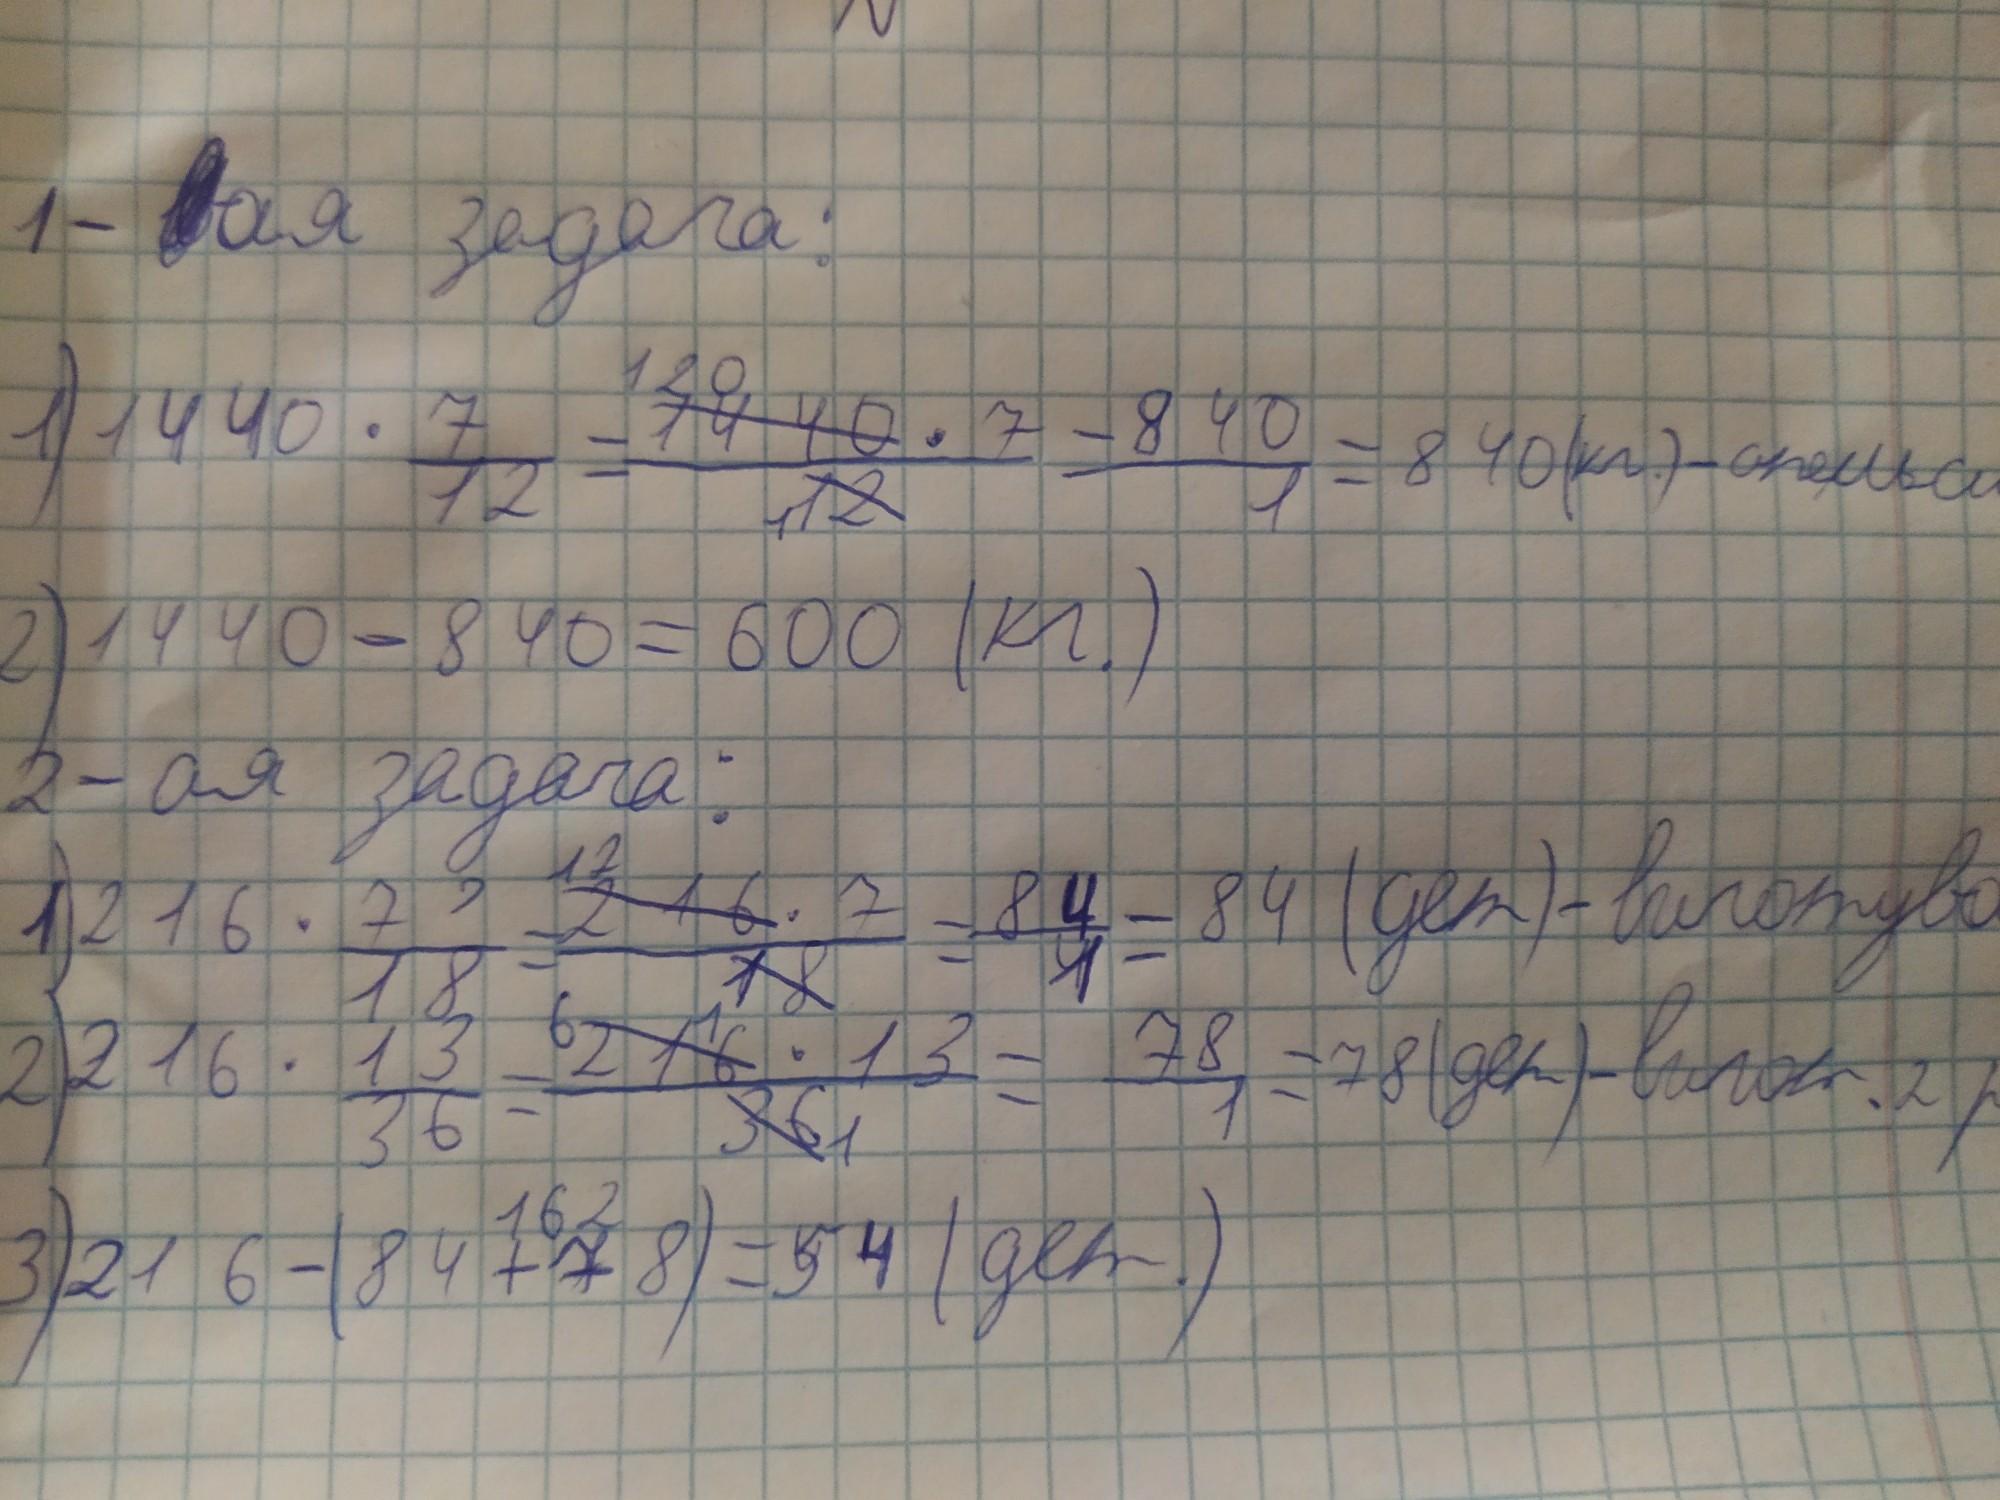 1-ая задача:
1) 1440 · 7/12 = 1440 · 7/12 = 840/1 = 840 (кг.) - апельси
2) 1440 - 840 = 600 (кг.)
2-ая задача:
1) 216 · 7/18 = 216 · 7/18 = 84/1 = 84 (дет) - виготува
2) 216 · 13/36 = 216 · 13/36 = 78/1 = 78 (дет) - вигот. 2 р
3) 216 - (84 + 78) = 54 (дет.)